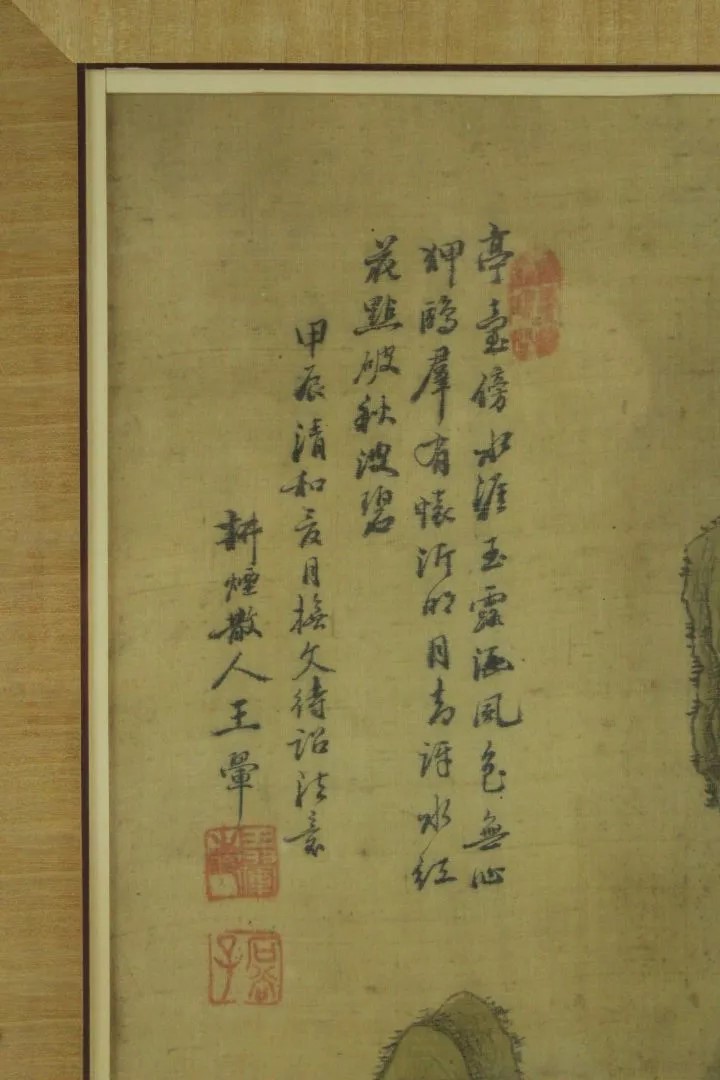 亭臺傍水涯玉露洒風色無心
狎鷗羣有懷泝明月訝水紅
花點破秋波碧
甲辰清和月橅文待詔法意
耕煙散人王翬
王翬之印
石谷子